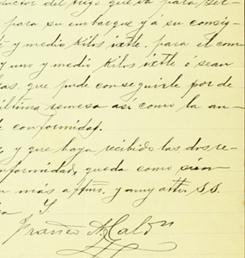 del trigo que va para ser-
para su embarque y á su consig-
y medio kilos neto. para el com
y uno y medio kilos neto ó sean
las, que pude conseguirle por de
última remesa así como la an-
de conformidad.
y que haya recibido las dos re-
conformidad, queda como siem
más affmo. y muy atto. S.S.
y